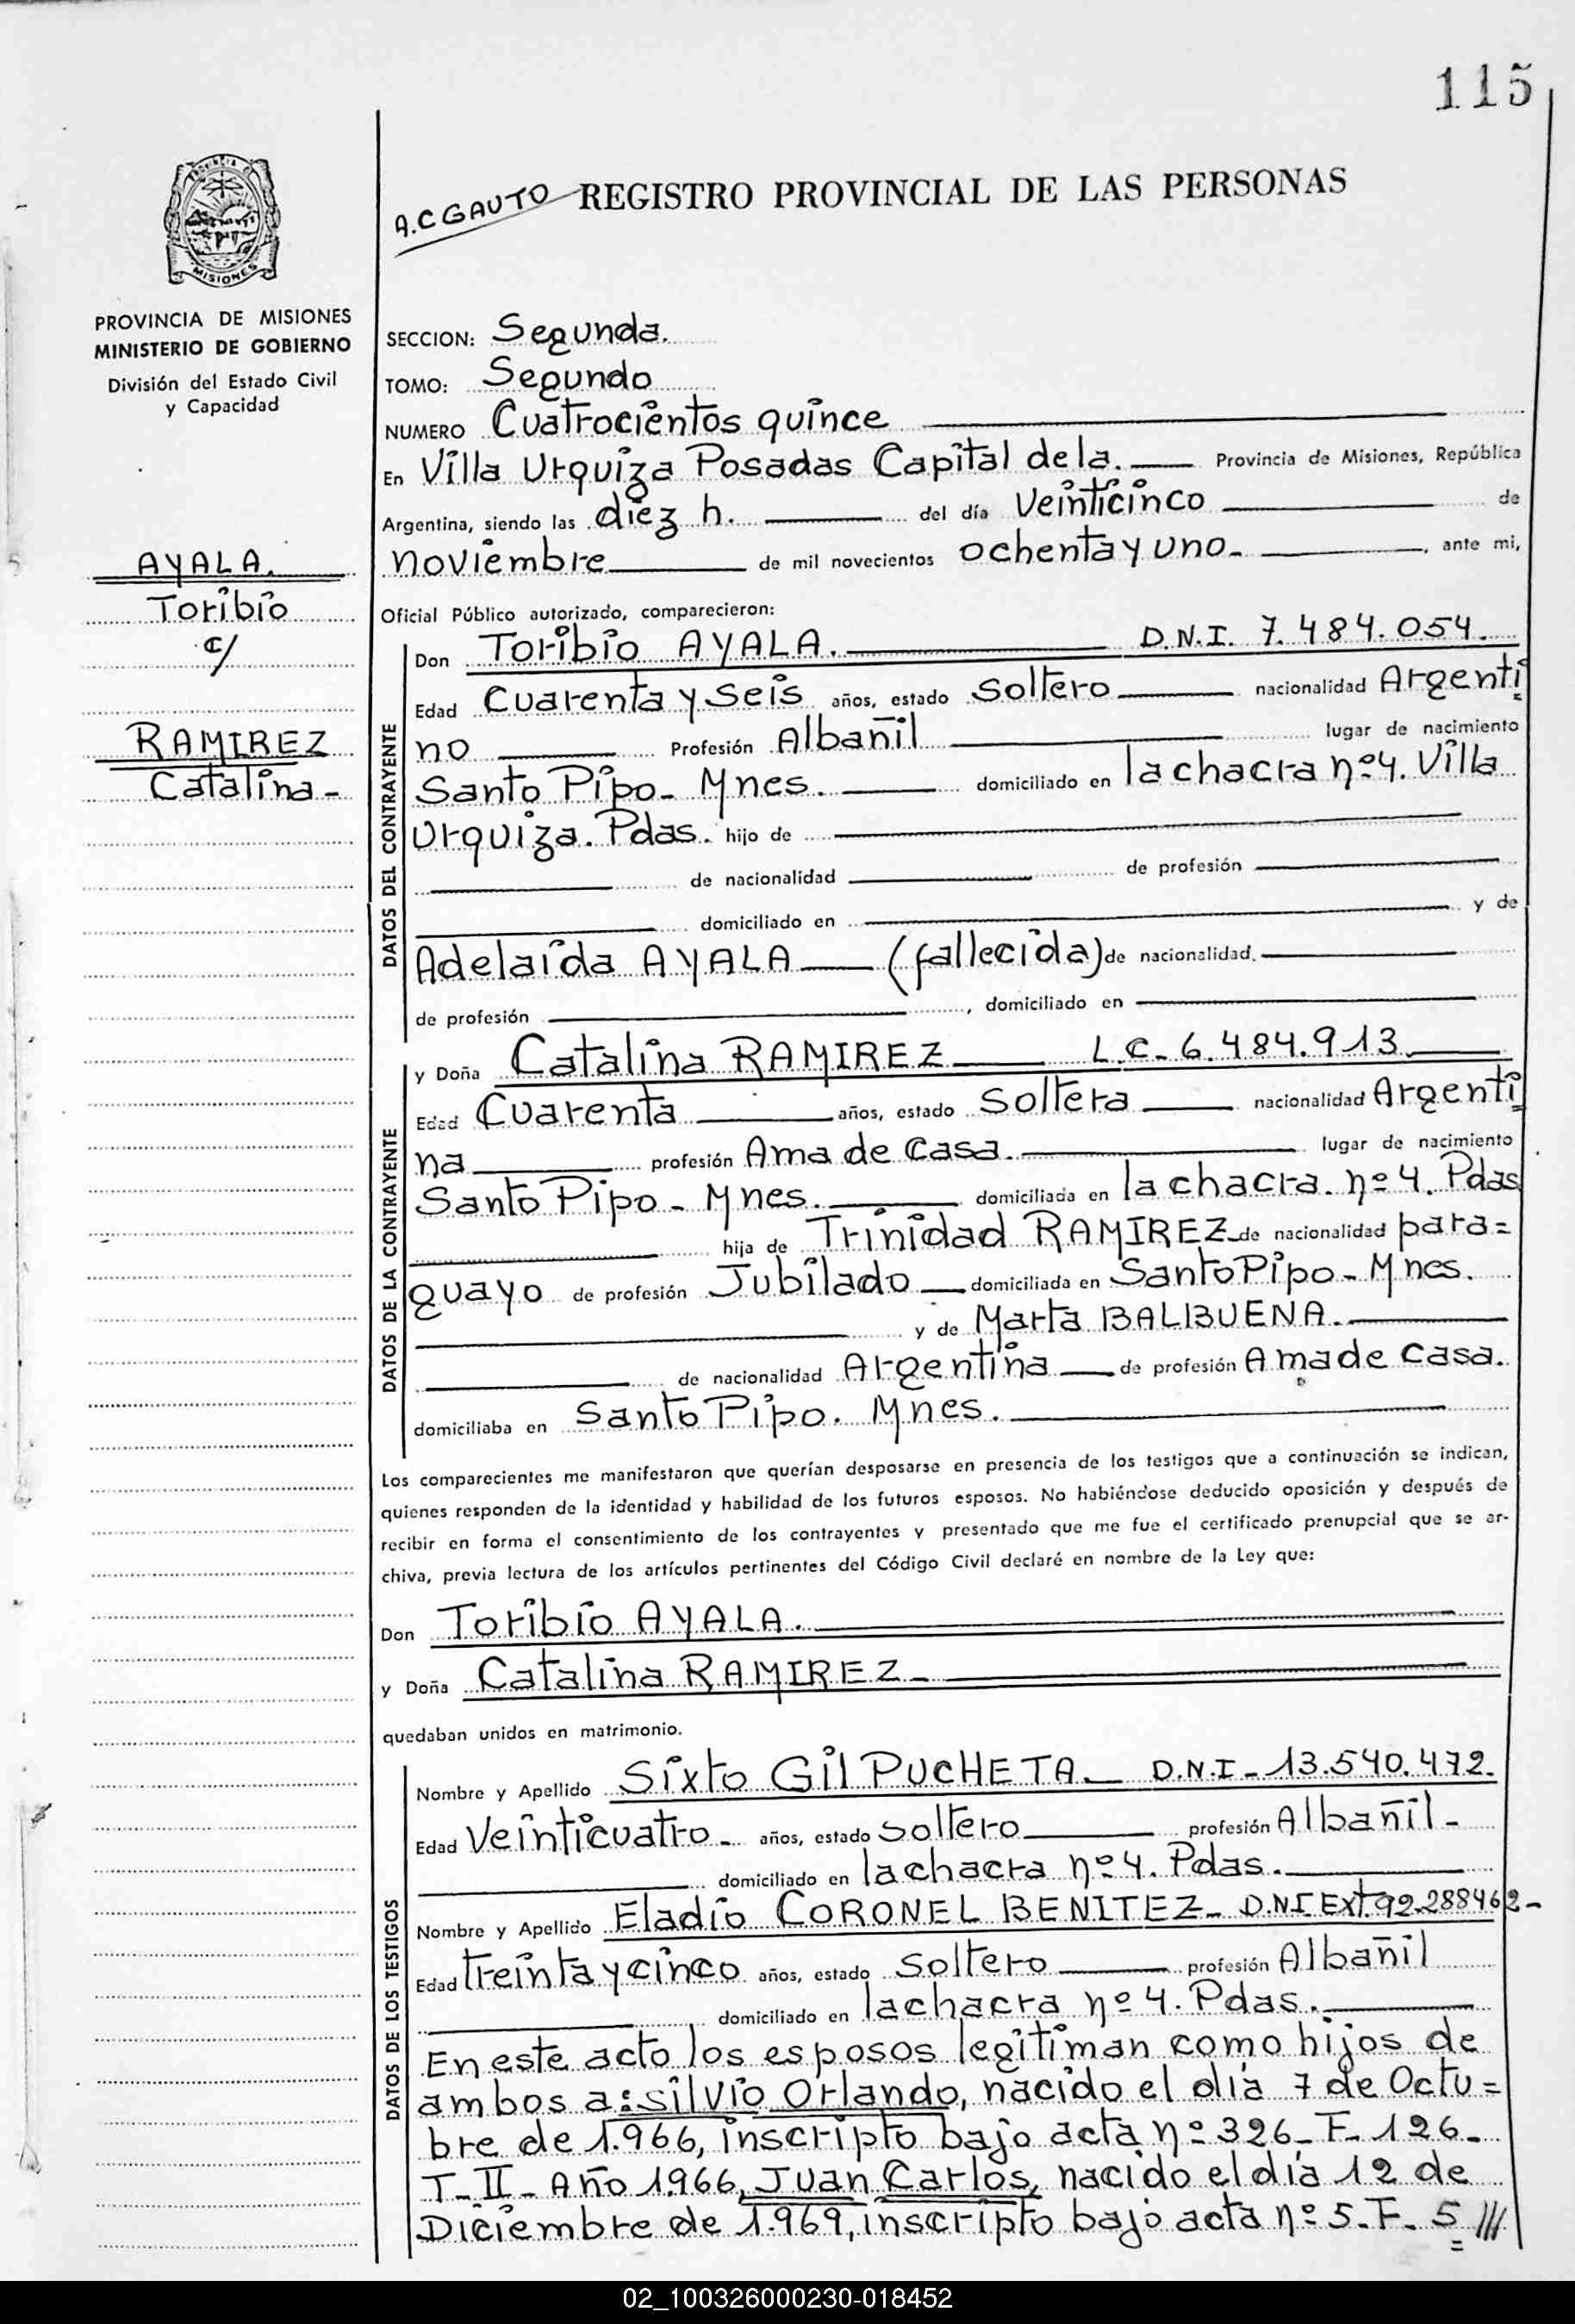 115
A.C GAUTO REGISTRO PROVINCIAL DE LAS PERSONAS
MISIONES
PROVINCIA DE MISIONES
MINISTERIO DE GOBIERNO
División del Estado Civil
y Capacidad
AYALA.
Toribio
c/
RAMIREZ
Catalina-
SECCION: Segunda.
TOMO: Segundo
NUMERO Cuatrocientos quince
En Villa Urquiza Posadas Capital de la. Provincia de Misiones, República
Argentina, siendo las diez h. del día Veinticinco de
noviembre de mil novecientos ochenta y uno- , ante mi,
Oficial Público autorizado, comparecieron:
DATOS DEL CONTRAYENTE
Don Toribio AYALA. D.N.I. 7.484.054.
Edad Cuarenta y Seis años, estado Soltero nacionalidad Argenti
no Profesión Albañil lugar de nacimiento
Santo Pipo- Mnes. domiciliado en la chacra nº4. Villa
Urquiza. Pdas. hijo de
de nacionalidad de profesión
domiciliado en y de
Adelaida AYALA (fallecida) de nacionalidad.
de profesión , domiciliado en
DATOS DE LA CONTRAYENTE
y Doña Catalina RAMIREZ L.C. 6.484.913
Edad Cuarenta años, estado Soltera nacionalidad Argenti
na profesión Ama de Casa. lugar de nacimiento
Santo Pipo - Mnes. domiciliada en la chacra. nº 4. Pdas
hija de Trinidad RAMIREZ de nacionalidad para=
guayo de profesión Jubilado domiciliada en Santo Pipo- Mnes.
y de Marta BALBUENA.
de nacionalidad Argentina de profesión Ama de Casa.
domiciliaba en Santo Pipo. Mnes.
Los comparecientes me manifestaron que querían desposarse en presencia de los testigos que a continuación se indican,
quienes responden de la identidad y habilidad de los futuros esposos. No habiéndose deducido oposición y después de
recibir en forma el consentimiento de los contrayentes y presentado que me fue el certificado prenupcial que se ar-
chiva, previa lectura de los artículos pertinentes del Código Civil declaré en nombre de la Ley que:
Don Toribio AYALA.
y Doña Catalina RAMIREZ-
quedaban unidos en matrimonio.
DATOS DE LOS TESTIGOS
Nombre y Apellido Sixto Gil PUCHETA. D.N.I- 13.540.472.
Edad Veinticuatro- años, estado Soltero profesión Albañil-
domiciliado en la chacra nº4. Pdas.
Nombre y Apellido Eladio CORONEL BENITEZ- D.N.I Ext. 92.288462-
Edad treinta y cinco años, estado Soltero profesión Albañil
domiciliado en la chacra nº 4. Pdas.
En este acto los esposos legitiman como hijos de
ambos a: Silvio Orlando, nacido el día 7 de Octu=
bre de 1.966, inscripto bajo acta nº 326- F- 126-
T-II- Año 1.966, Juan Carlos, nacido el día 12 de
Diciembre de 1.969, inscripto bajo acta nº 5-F- 5 ///
02_100326000230-018452